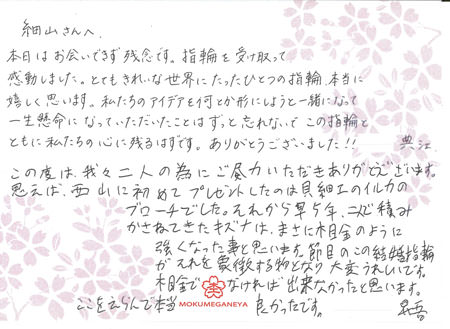 細山さんへ、
本日はお会いできず残念です。指輪を受け取って
感動しました。とてもきれいな世界にたったひとつの指輪、本当に
嬉しく思います。私たちのアイデアを何とか形にしようと一緒になって
一生懸命になっていただいたことはずっと忘れないで この指輪と
ともに私たちの心に残るはずです。ありがとうございました!!
典江
この度は、我々二人の為にご尽力いただきありがとうございます。
思えば、西山に初めてプレゼントしたのは貝細工のイルカの
ブローチでした。それから早5年、二人で積み
かさねてきたキズナは、まさに木目金のように
強くなった事と思います。節目のこの結婚指輪
がそれを象徴する物となり 大変うれしいです。
木目金でなければ出来なかったと思います。
ここをえらんで本当 良かったです。
MOKUMEGANEYA